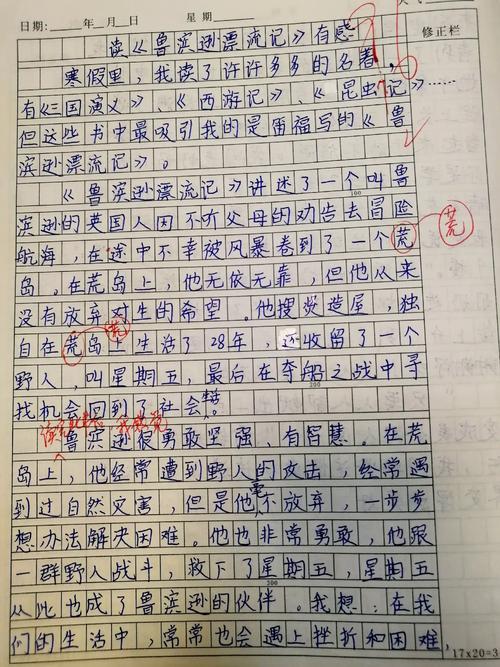 日期: 年 月 日 星期
修正栏
读《鲁滨逊漂流记》有感
寒假里,我读了许许多多的名著,
有《三国演义》、《西游记》、《昆虫记》……
但这些书中最吸引我的是雷福写的《鲁
滨逊漂流记》。
《鲁滨逊漂流记》讲述了一个叫鲁
100
滨逊的英国人因不听父母的劝告去冒险
航海,在途中不幸被风暴卷到了一个荒
荒
岛。在荒岛上,他无依无靠,但他从来
没有放弃对生的希望。他搜
造屋,独
荒
自在荒岛上生活了28年,还收留了一个
野人,叫星期五,最后在夺船之战中寻
200
找机会回到了社会
。
鲁滨逊很勇敢坚强、有智慧。在荒
岛上,他经常遭到野人的攻击,经常遇
到过自然灾害,但是他毫不放弃,一步步
想办法解决困难。他也非常勇敢,他跟
一群野人战斗,救下了星期五,星期五
300
从此也成了鲁滨逊的伙伴。我想:在我
们的生活中,常常也会遇上挫折和困难,
17×20=3